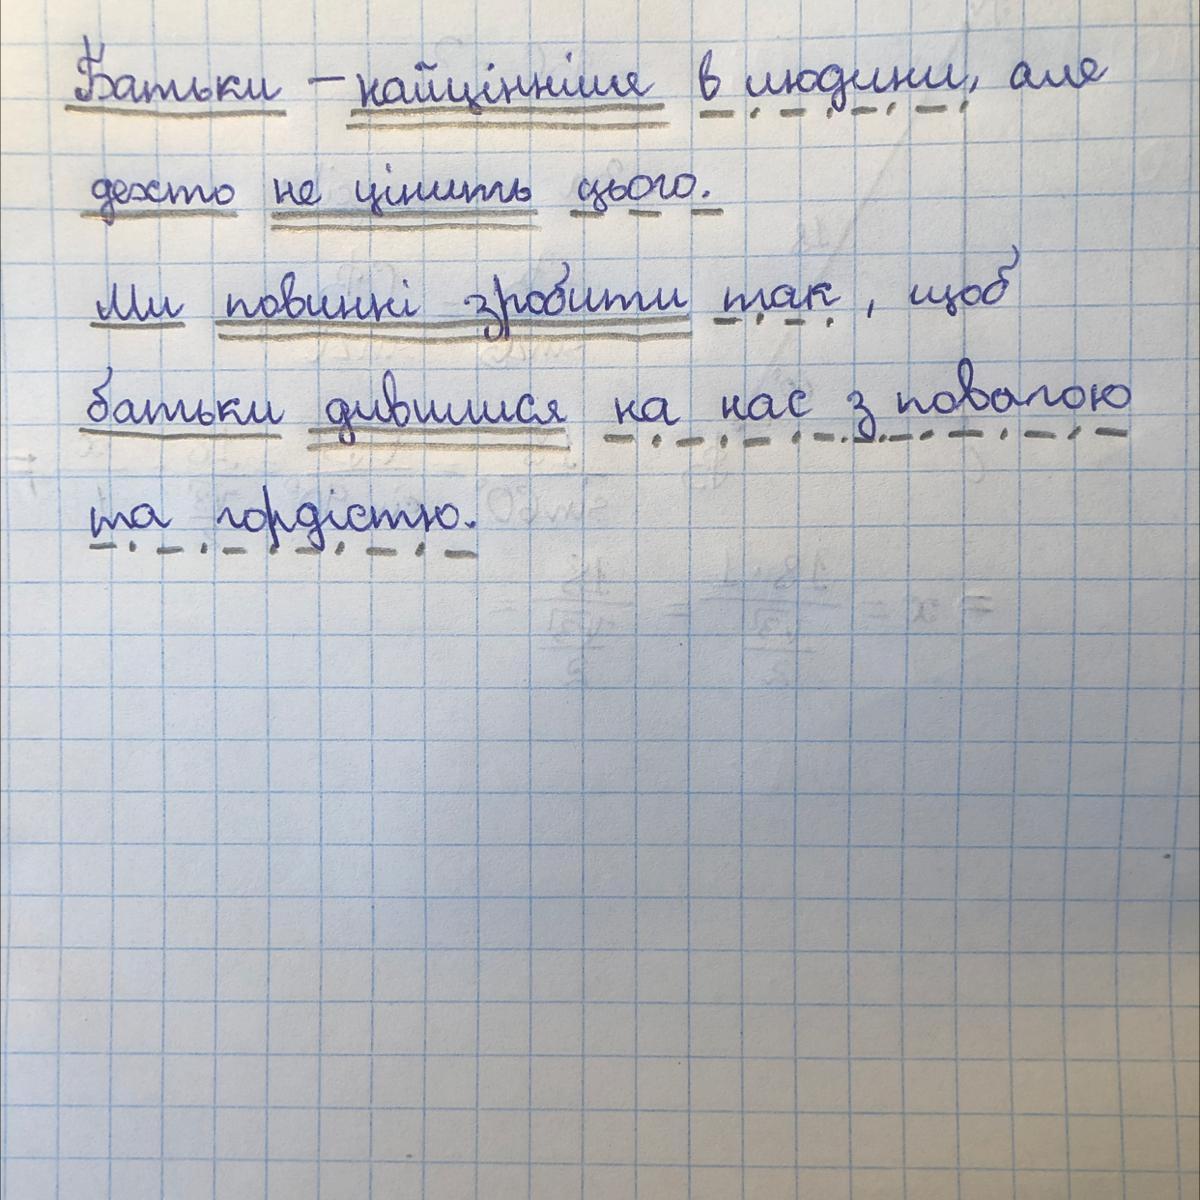 Батьки – найцінніше в людини, але
дехто не цінить цього.
Ми повинні зробити так, щоб
батьки дивилися на нас з повагою
та гордістю.